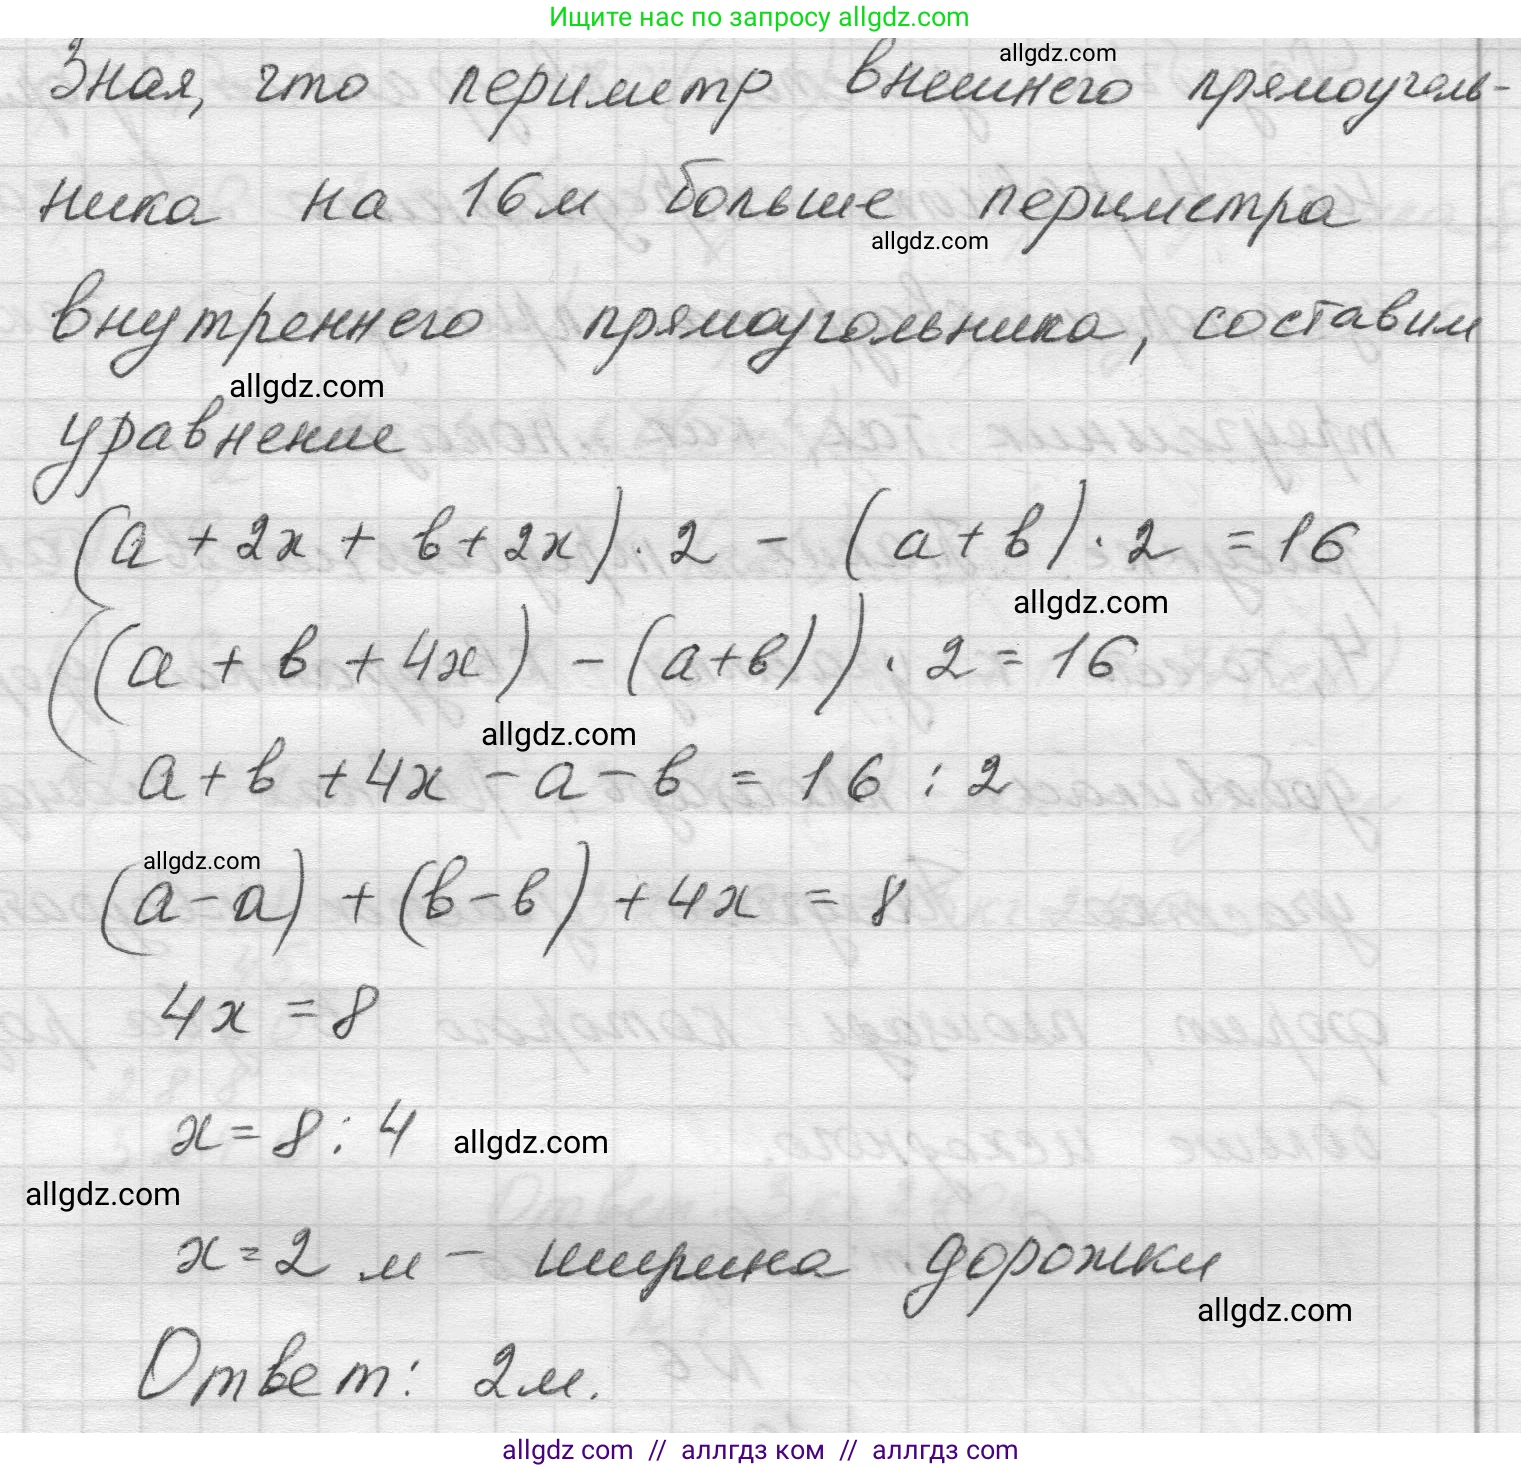 Ищите нас по запросу allgdz.com
allgdz.com
Зная, что периметр внешнего прямоуголь-
ника на 16м больше периметра
allgdz.com
внутреннего прямоугольника, составим
allgdz.com
уравнение
(а + 2х + в + 2х) · 2 - (а + в) · 2 = 16
allgdz.com
((а + в + 4х) - (а+в)) · 2 = 16
allgdz.com
а + в + 4х - а - в = 16 : 2
allgdz.com
(а - а) + (в - в) + 4х = 8
4х = 8
х = 8 : 4
allgdz.com
allgdz.com
х = 2 м - ширина дорожки
allgdz.com
Ответ: 2м.
allgdz com // аллгдз ком // аллгдз com